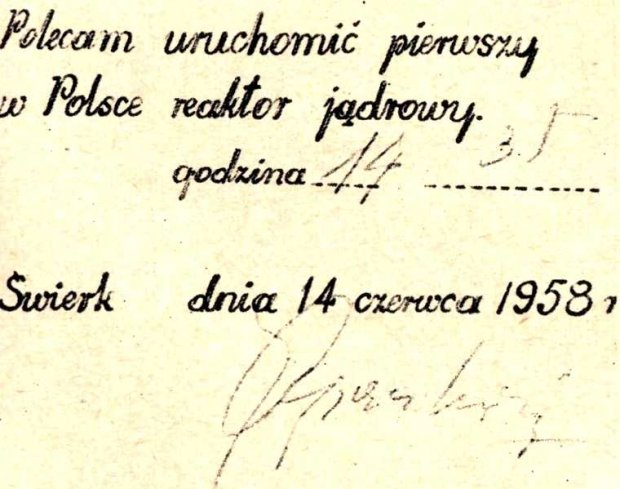 Polecam uruchomić pierwszy
w Polsce reaktor jądrowy.
godzina 14 35
Świerk dnia 14 czerwca 1958 r